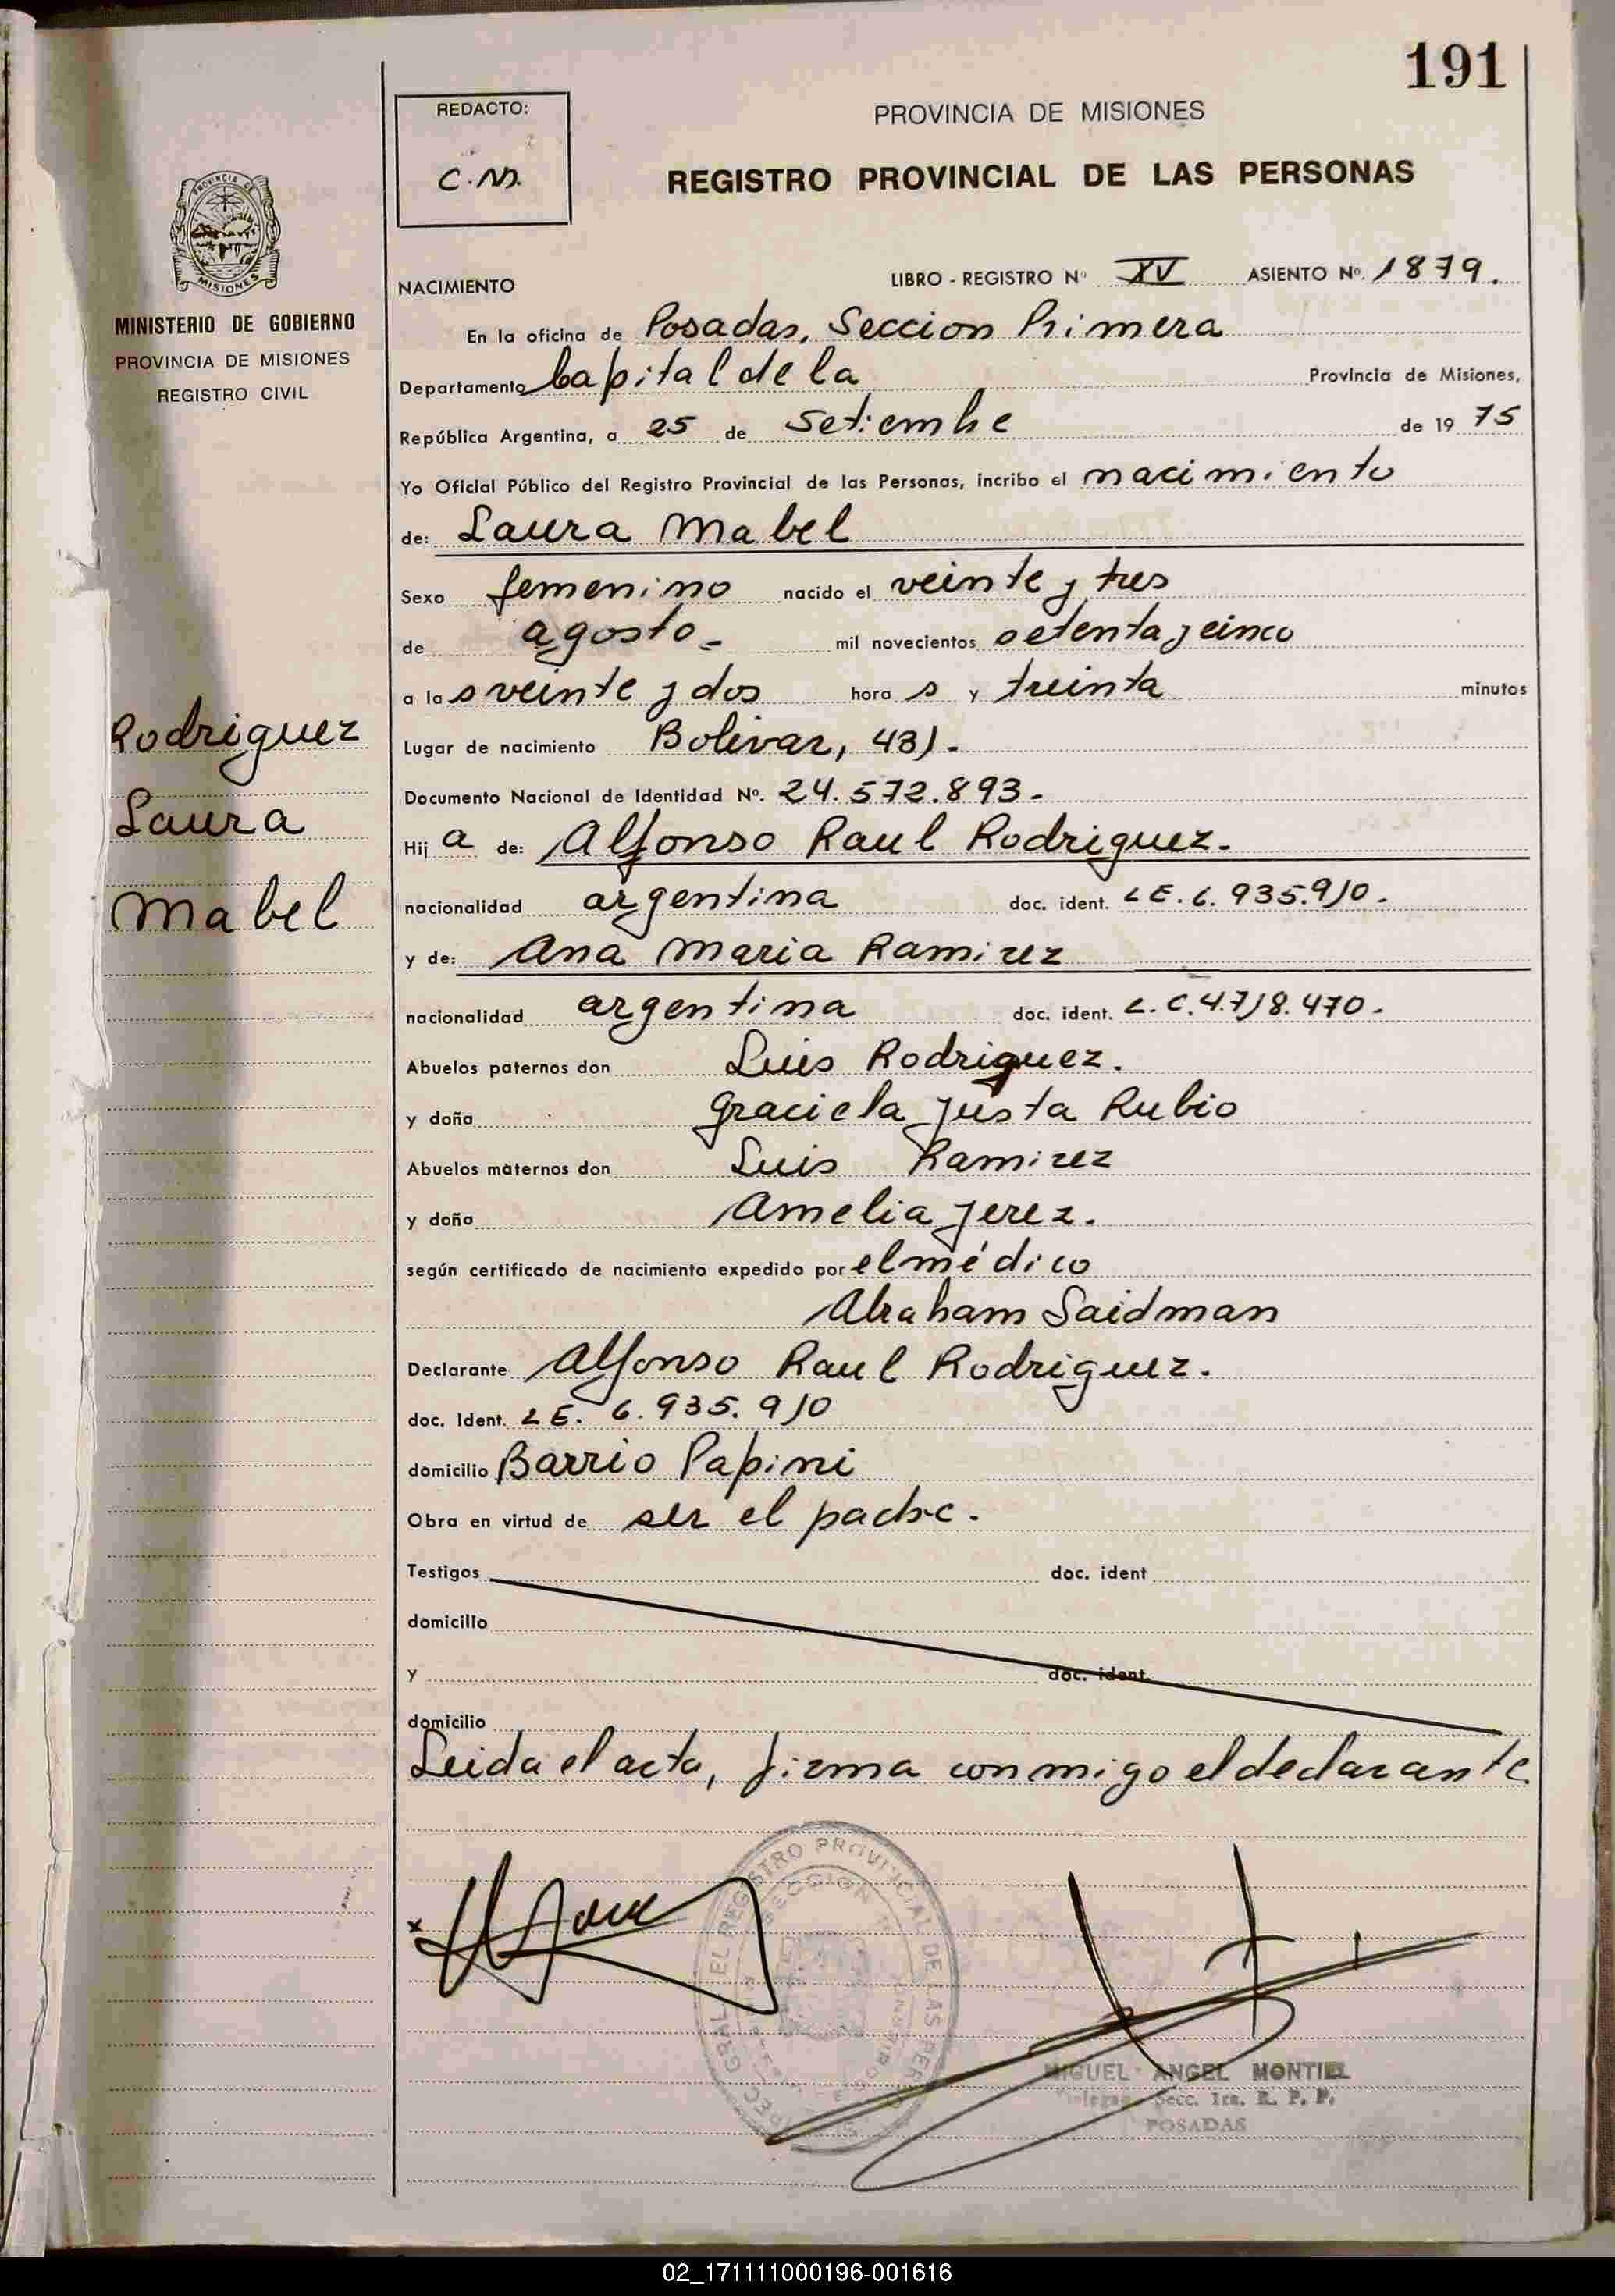 191
REDACTO:
C.M.
PROVINCIA DE MISIONES
REGISTRO PROVINCIAL DE LAS PERSONAS
PROVINCIA DE
MISIONES
MINISTERIO DE GOBIERNO
PROVINCIA DE MISIONES
REGISTRO CIVIL
Rodriguez
Laura
Mabel
NACIMIENTO LIBRO - REGISTRO Nº XV ASIENTO Nº. 1879.
En la oficina de Posadas, Seccion Primera
Departamento Capital de la Provincia de Misiones,
República Argentina, a 25 de Setiembre de 19 75
Yo Oficial Público del Registro Provincial de las Personas, incribo el nacimiento
de: Laura Mabel
Sexo femenino nacido el veinte y tres
de agosto.- mil novecientos setenta y cinco
a las veinte y dos hora s y treinta minutos
Lugar de nacimiento Bolivar, 431.-
Documento Nacional de Identidad Nº. 24.572.893.-
Hij a de: Alfonso Raul Rodriguez.
nacionalidad argentina doc. ident. LE. 6.935.910.
y de: Ana Maria Ramirez
nacionalidad argentina doc. ident. L.C. 4.718.470.
Abuelos paternos don Luis Rodriguez.
y doña Graciela Justa Rubio
Abuelos maternos don Luis Ramirez
y doña Amelia Jerez.
según certificado de nacimiento expedido por el médico
Abraham Saidman
Declarante Alfonso Raul Rodriguez.
doc. Ident. LE. 6.935.910
domicilio Barrio Papini
Obra en virtud de ser el padre.
Testigos doc. ident
domicilio
y doc. ident.
domicilio
Leida el acta, firma conmigo el declarante.
GRAL EL REGISTRO PROVINCIAL DE LAS PER
SECCION
MIGUEL ANGEL MONTIEL
Secc. 1ra. R. P. P.
POSADAS
02_171111000196-001616